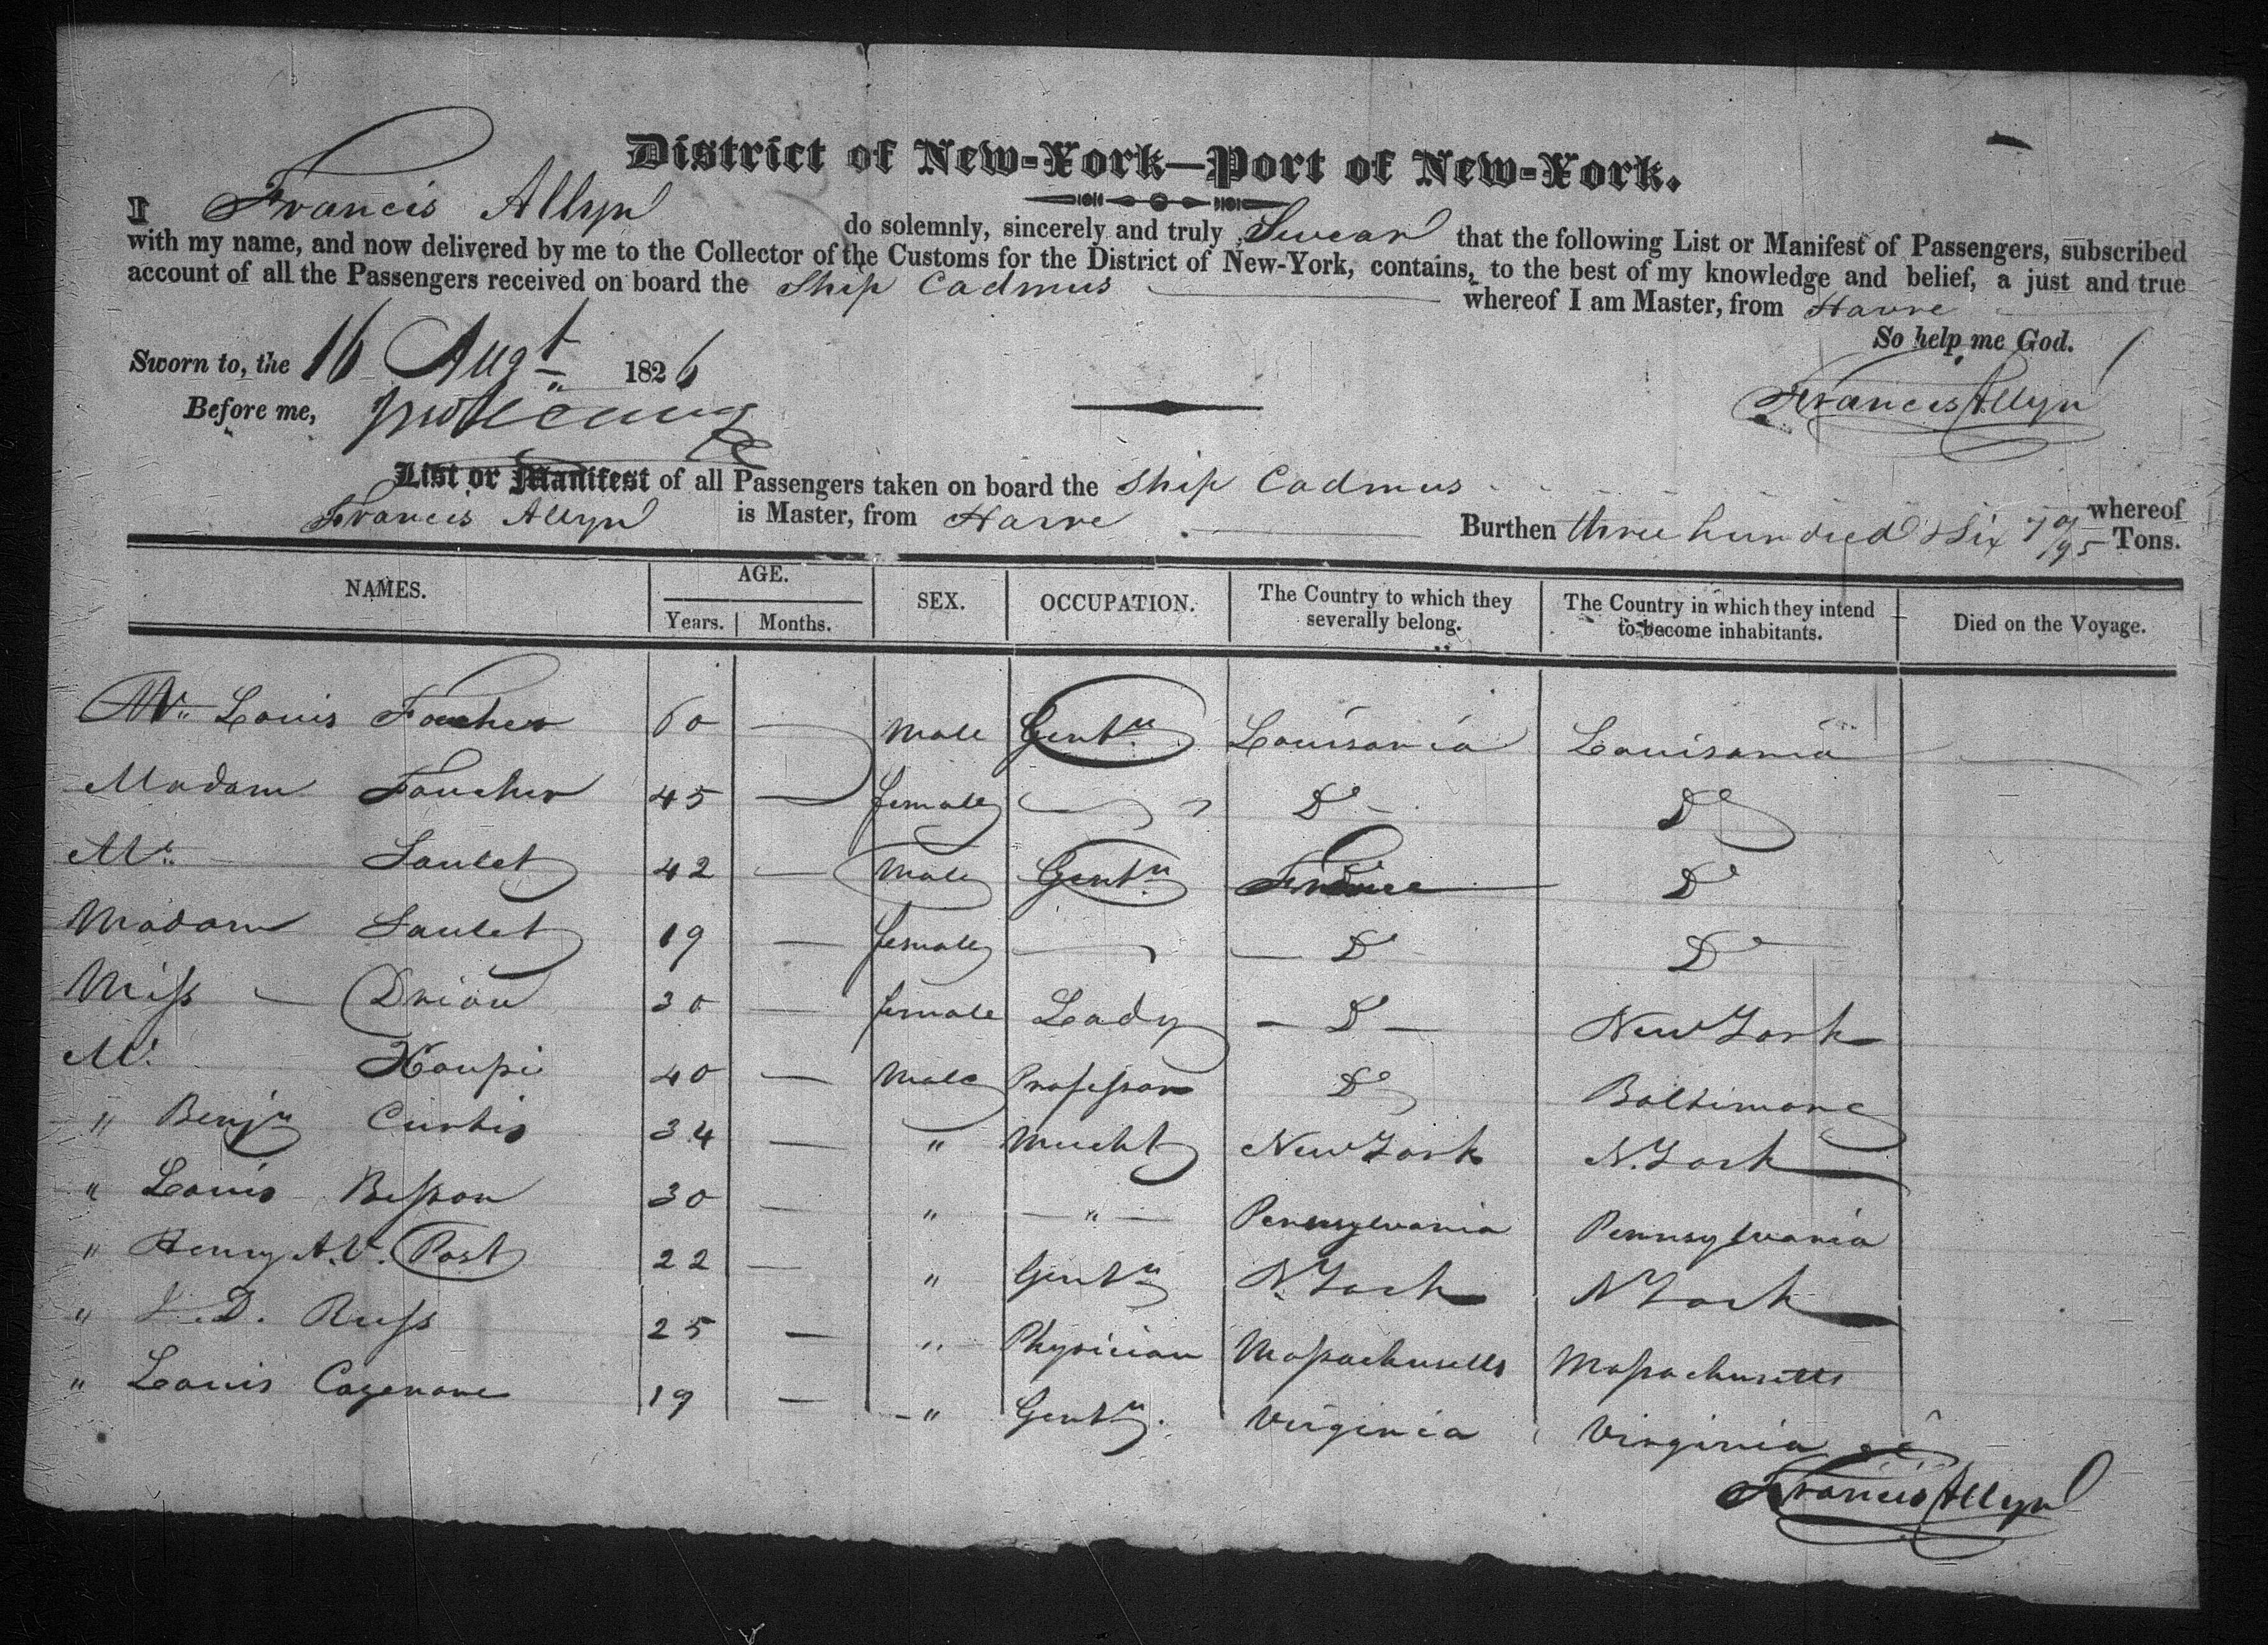 District of New-York—Port of New-York.
I Francis Allyn do solemnly, sincerely and truly Swear that the following List or Manifest of Passengers, subscribed
with my name, and now delivered by me to the Collector of the Customs for the District of New-York, contains, to the best of my knowledge and belief, a just and true
account of all the Passengers received on board the Ship Cadmus whereof I am Master, from Havre
So help me God.
Sworn to, the 16 Augt 1826
Francis Allyn
Before me,
List or Manifest of all Passengers taken on board the Ship Cadmus whereof
Francis Allyn is Master, from Havre Burthen three hundred & Six 70/95 Tons.
NAMES. AGE. SEX. OCCUPATION. The Country to which they severally belong. The Country in which they intend to become inhabitants. Died on the Voyage.
Years. Months.
Mr. Louis Foucher 60 — Male Gentn Louisania Louisania
Madam Foucher 45 — female Do Do
Mr. Saulet 42 — Male Gentn Do
Madam Saulet 19 — female — Do Do
Miss — Driou 30 — female Lady — Do — New York
Mr. 40 — Male Professor Do Baltimore
" Benjn Curtis 34 — " Mercht New York N. York
" Louis Besson 30 — " — " — Pennsylvania Pennsylvania
" Henry A.V. Post 22 — " Gentn N. York N York
" J. D. Russ 25 — " Physician Massachusetts Massachusetts
" Louis Cazenove 19 — " Gentn. Virginia Virginia
Francis Allyn